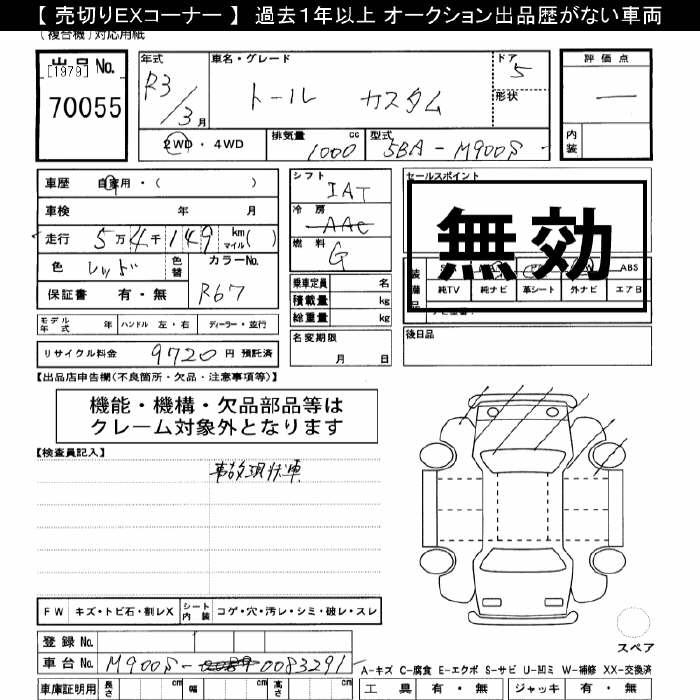 【 売切りEXコーナー 】 過去1年以上 オークション出品歴がない車両
(複合機)対応用紙
出品 No.
[1979]
70055
年式
R3/3月
車名・グレード
トール カスタム
ドア
5
形状
評価点
―
内装
2WD・4WD
排気量 cc
1000
型式
5BA-M900S-
車歴 自家用・( )
車検 年 月
走行 5万4千149 km マイル ( )
色 レッド
色替
カラーNo.
R67
保証書 有・無
シフト
IAT
冷房
AAC
燃料
G
乗車定員 名
積載量 kg
総重量 kg
名変期限
月 日
セールスポイント
無効
装備品
ABS
純TV 純ナビ 革シート 外ナビ エアB
後日品
モデル年式 年 ハンドル 左・右 ディーラー・並行
リサイクル料金 9720 円 預託済
【出品店申告欄(不良箇所・欠品・注意事項等)】
機能・機構・欠品部品等は
クレーム対象外となります
【検査員記入】
事故現状車
FW キズ・トビ石・割レX シート内装 コゲ・穴・汚レ・シミ・破レ・スレ
登録 No.
車台 No. M900S- 0083291-
スペア
A-キズ C-腐食 E-エクボ S-サビ U-凹ミ W-補修 XX-交換済
車庫証明用 長さ cm 幅 cm 高さ cm
工具 有・無 ジャッキ 有・無